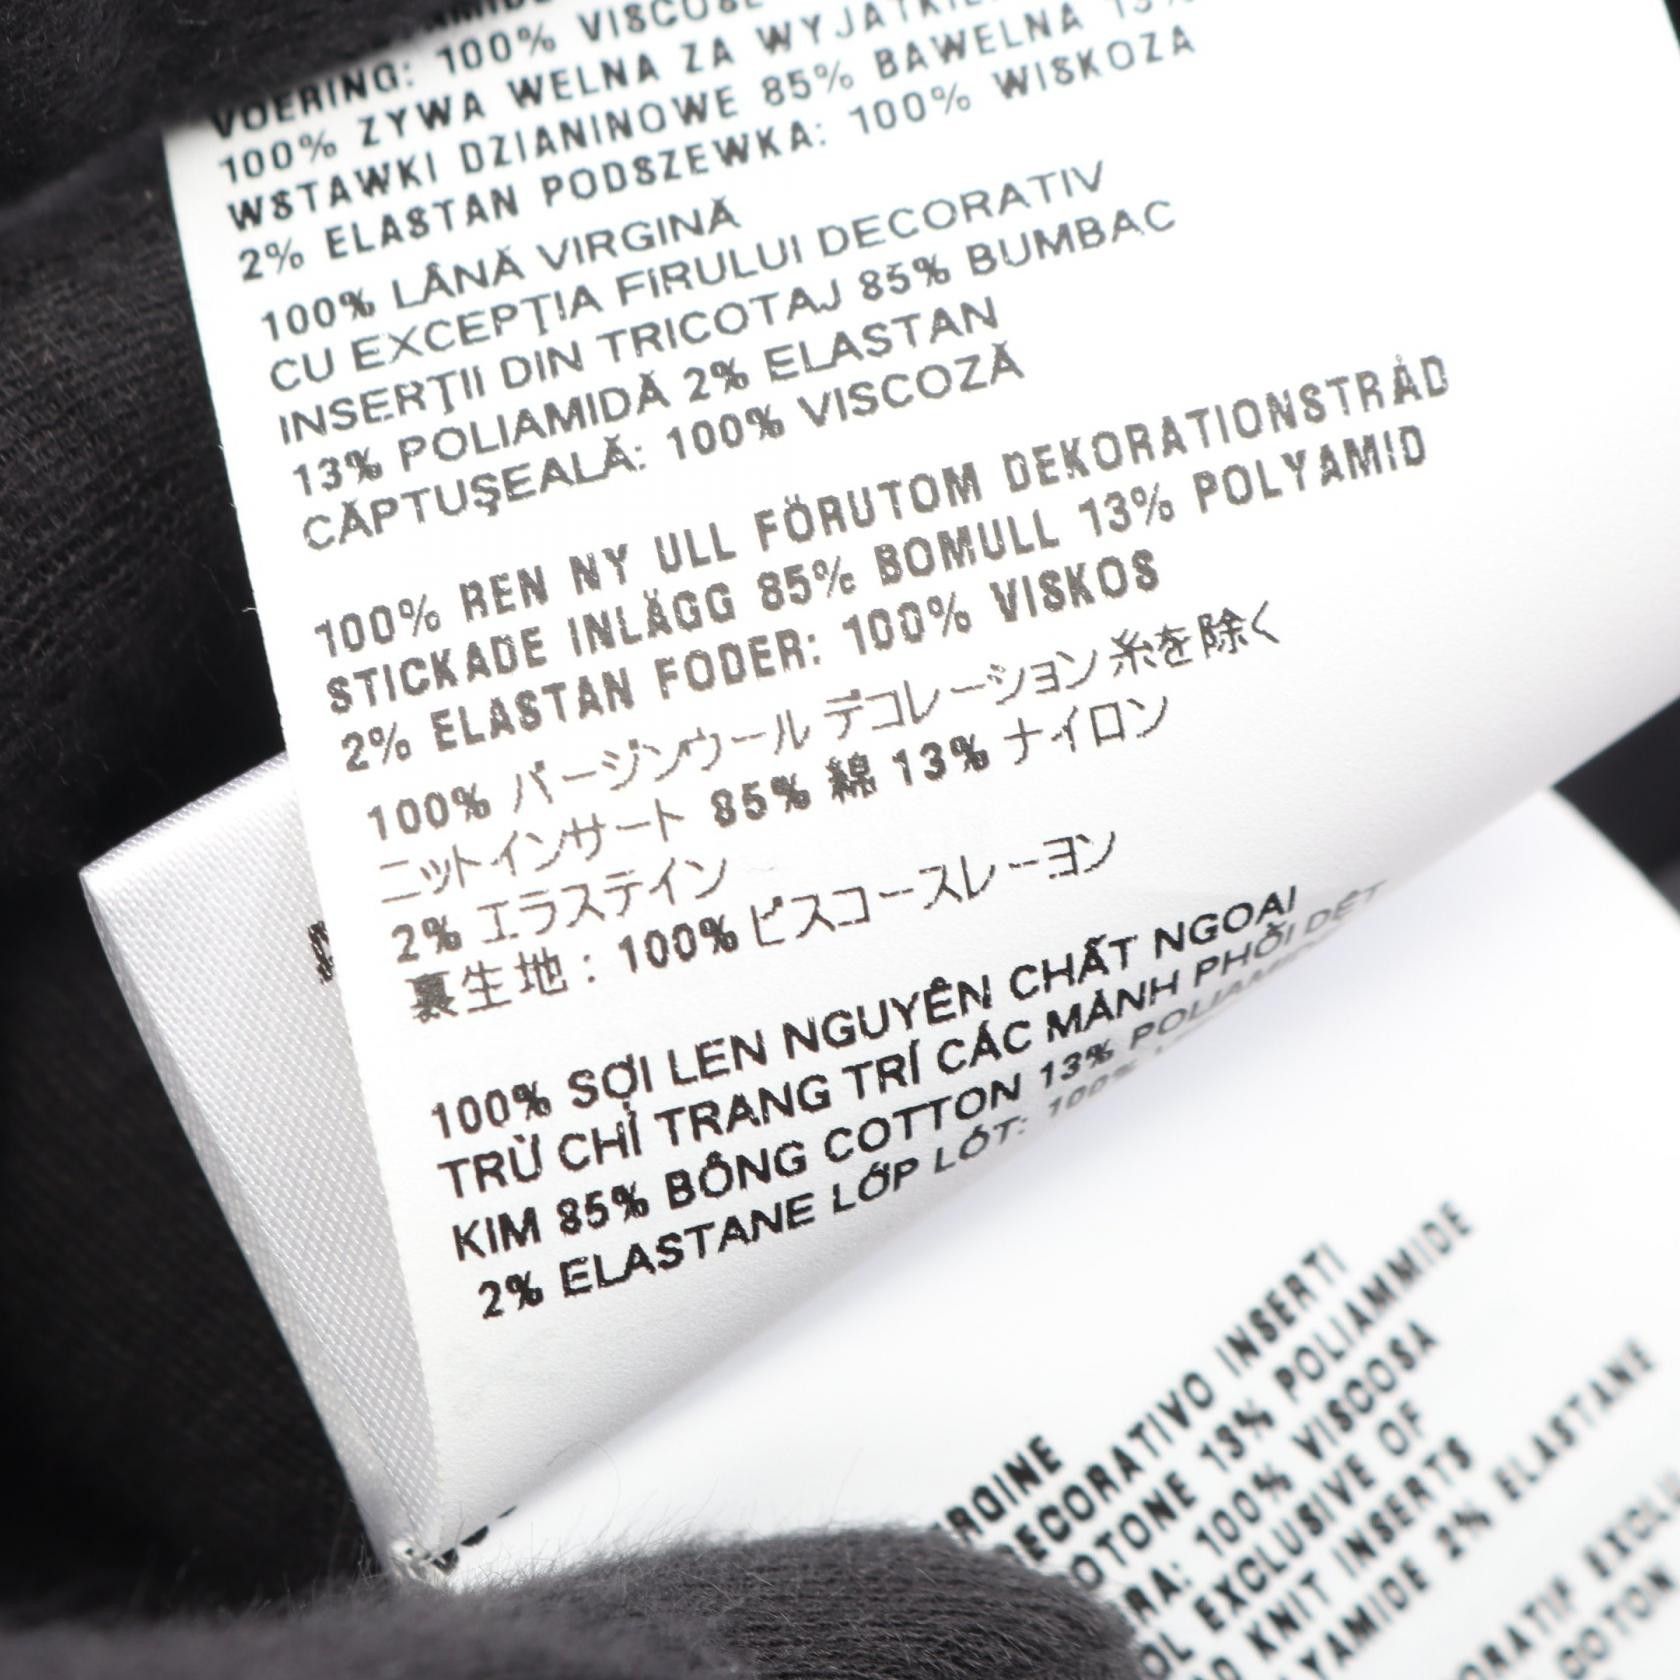 VOERING: 100% VISCOSE
100% ZYWA WELNA ZA
WSTAWKI DZIANINOWE 85% BAWELNA 13%
2% ELASTAN PODSZEWKA: 100% WISKOZA
100% LÂNĂ VIRGINĂ
CU EXCEPŢIA FIRULUI DECORATIV
INSERŢII DIN TRICOTAJ 85% BUMBAC
13% POLIAMIDĂ 2% ELASTAN
CĂPTUŞEALĂ: 100% VISCOZĂ
100% REN NY ULL FÖRUTOM DEKORATIONSTRÅD
STICKADE INLÄGG 85% BOMULL 13% POLYAMID
2% ELASTAN FODER: 100% VISKOS
100% バージンウール デコレーション糸を除く
ニットインサート 85% 綿 13% ナイロン
2% エラステイン
裏生地: 100% ビスコースレーヨン
100% SỢI LEN NGUYÊN CHẤT NGOẠI
TRỪ CHỈ TRANG TRÍ CÁC MẢNH PHỐI DỆT
KIM 85% BÔNG COTTON 13%
2% ELASTANE LỚP LÓT: 100%
DECORATIVO INSERTI
13% POLIAMMIDE
100% VISCOSA
EXCLUSIVE OF
KNIT INSERTS
2% ELASTANE